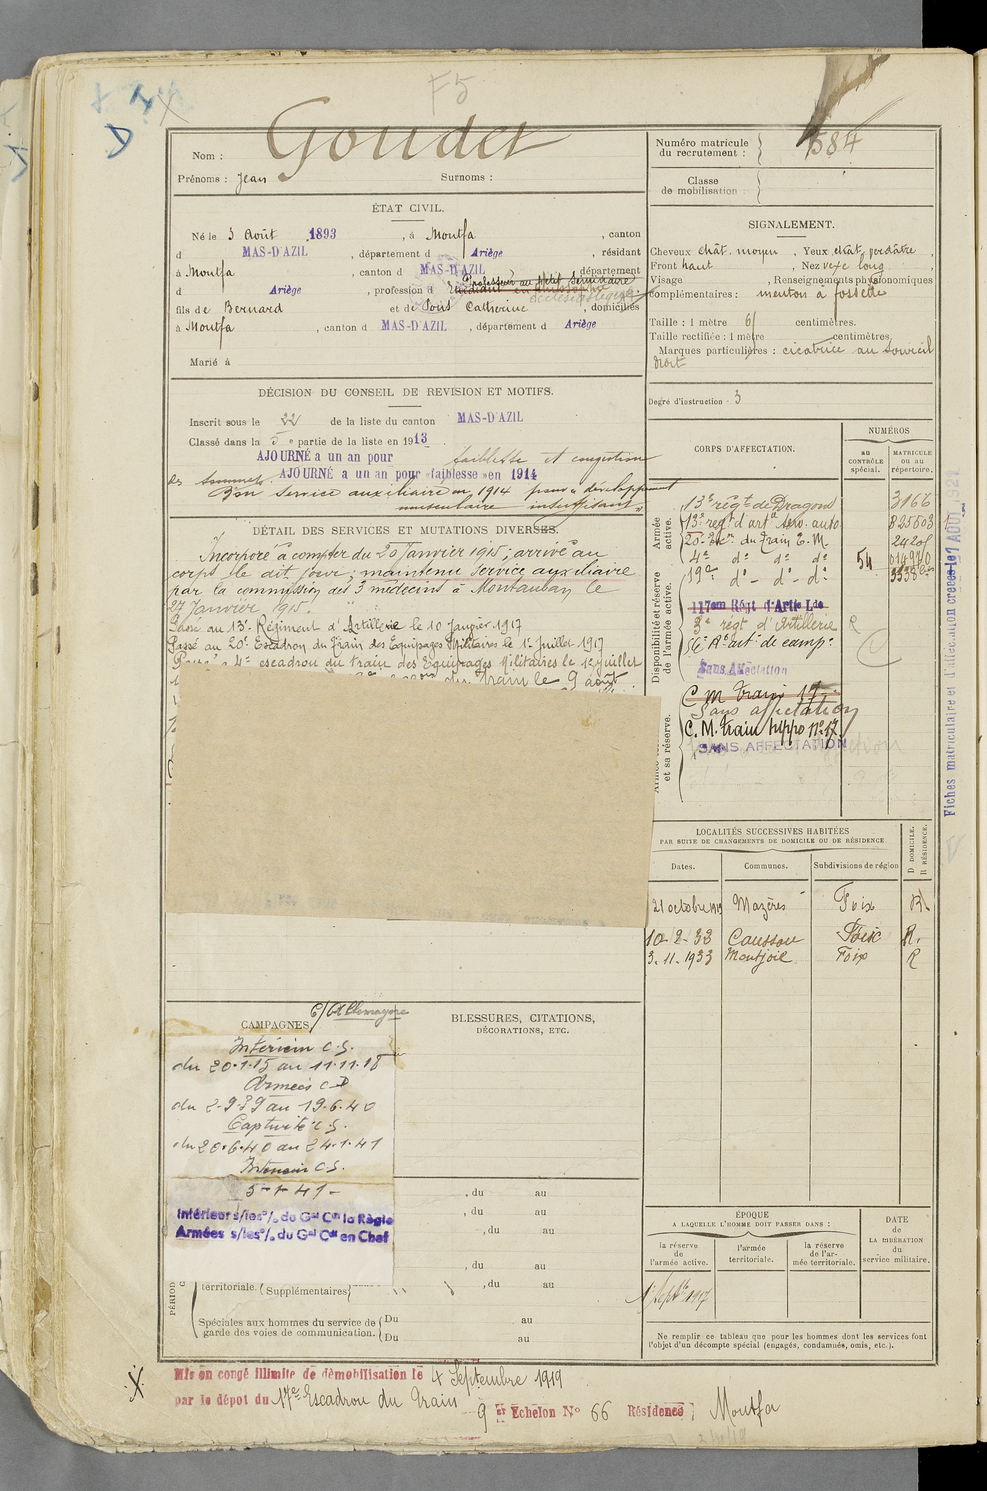 F5
Goudet
Nom :
Prénoms : Jean Surnoms :
Numéro matricule du recrutement : 584
Classe de mobilisation :
ÉTAT CIVIL.
Né le 3 Août 1893, à Montfa, canton
d MAS-D'AZIL, département d Ariège, résidant
à Montfa, canton d MAS-D'AZIL, département
Professeur au Petit Séminaire
d Ariège, profession d Etudiant
ecclésiastique
fils de Bernard et de Catherine, domiciliés
à Montfa, canton d MAS-D'AZIL, département d Ariège
Marié à
SIGNALEMENT.
Cheveux chât. moyen, Yeux chât. verdâtre,
Front haut, Nez vexe long,
Visage, Renseignements physionomiques
complémentaires : menton à fossette
Taille : 1 mètre 61 centimètres.
Taille rectifiée : 1 mètre centimètres.
Marques particulières : cicatrice au sourcil
droit
Degré d'instruction : 3
DÉCISION DU CONSEIL DE REVISION ET MOTIFS.
Inscrit sous le 22 de la liste du canton MAS-D'AZIL
Classé dans la 5e partie de la liste en 1913.
AJOURNÉ a un an pour faiblesse et congestion
des sommets. AJOURNÉ a un an pour «faiblesse» en 1914
Bon service auxiliaire en 1914 pour « développement
musculaire insuffisant »
DÉTAIL DES SERVICES ET MUTATIONS DIVERSES.
Incorporé à compter du 20 Janvier 1915, arrivé au
corps le dit jour, maintenu service auxiliaire
par la commission des 3 médecins à Montauban le
27 Janvier 1915.
Passé au 13e Régiment d'Artillerie le 10 Janvier 1917
Passé au 20e Escadron du Train des Équipages Militaires le 1er Juillet 1917
Passé 4e escadron du train des Équipages Militaires le 1er Juillet
du Train le 9 août
CORPS D'AFFECTATION.
NUMÉROS
au CONTRÔLE spécial.
MATRICULE ou au répertoire.
Armée active.
13e régt de Dragons 3166
13e regt d'art. auto 825603
20e Escn du Train E. M. 2420
4e do do do 54
19e do - do - do
Disponibilité et réserve de l'armée active.
117em Régt d'Artie Lde
3e regt d'Artillerie R
56e Ac art de camp:
Sans Affectation
et sa réserve.
C M Train 17
Sans affectation
C. M. train hippo no 17
SANS AFFECTATION
Fiches matriculaire et d'affectation creees le 1 AOUT 1921
LOCALITÉS SUCCESSIVES HABITÉES
PAR SUITE DE CHANGEMENTS DE DOMICILE OU DE RÉSIDENCE
Dates. Communes. Subdivisions de région D DOMICILE. R RÉSIDENCE.
21 octobre 1919 Mazères Foix R.
10-2-33 Caussou Foix R.
3-11-1933 Montjoie Foix R
CAMPAGNES
C/ Allemagne
Intérieur C.S.
du 20.1.15 au 11.11.18
Armées C D
du 2-9-39 au 19.6.40
Captivité C.S.
du 20.6.40 au 24.1.41
Intérieur C.S.
Intérieur s/les o/. du Gal Ct la Règle
Armées s/les o/. du Gal Ct en Chef
BLESSURES, CITATIONS,
DÉCORATIONS, ETC.
, du au
, du au
, du au
, du au
PÉRIOD
territoriale. (Supplémentaires) , du au
Spéciales aux hommes du service de garde des voies de communication. Du au
Du au
ÉPOQUE
A LAQUELLE L'HOMME DOIT PASSER DANS :
la réserve de l'armée active.
l'armée territoriale.
la réserve de l'armée territoriale.
DATE de la LIBÉRATION du service militaire.
1er Septbre 1917
Ne remplir ce tableau que pour les hommes dont les services font
l'objet d'un décompte spécial (engagés, condamnés, omis, etc.).
Mis en congé illimité de démobilisation le 4 Septembre 1919
par le dépot du 17e Escadron du Train
9 Echelon No 66 Résidence : Montfa